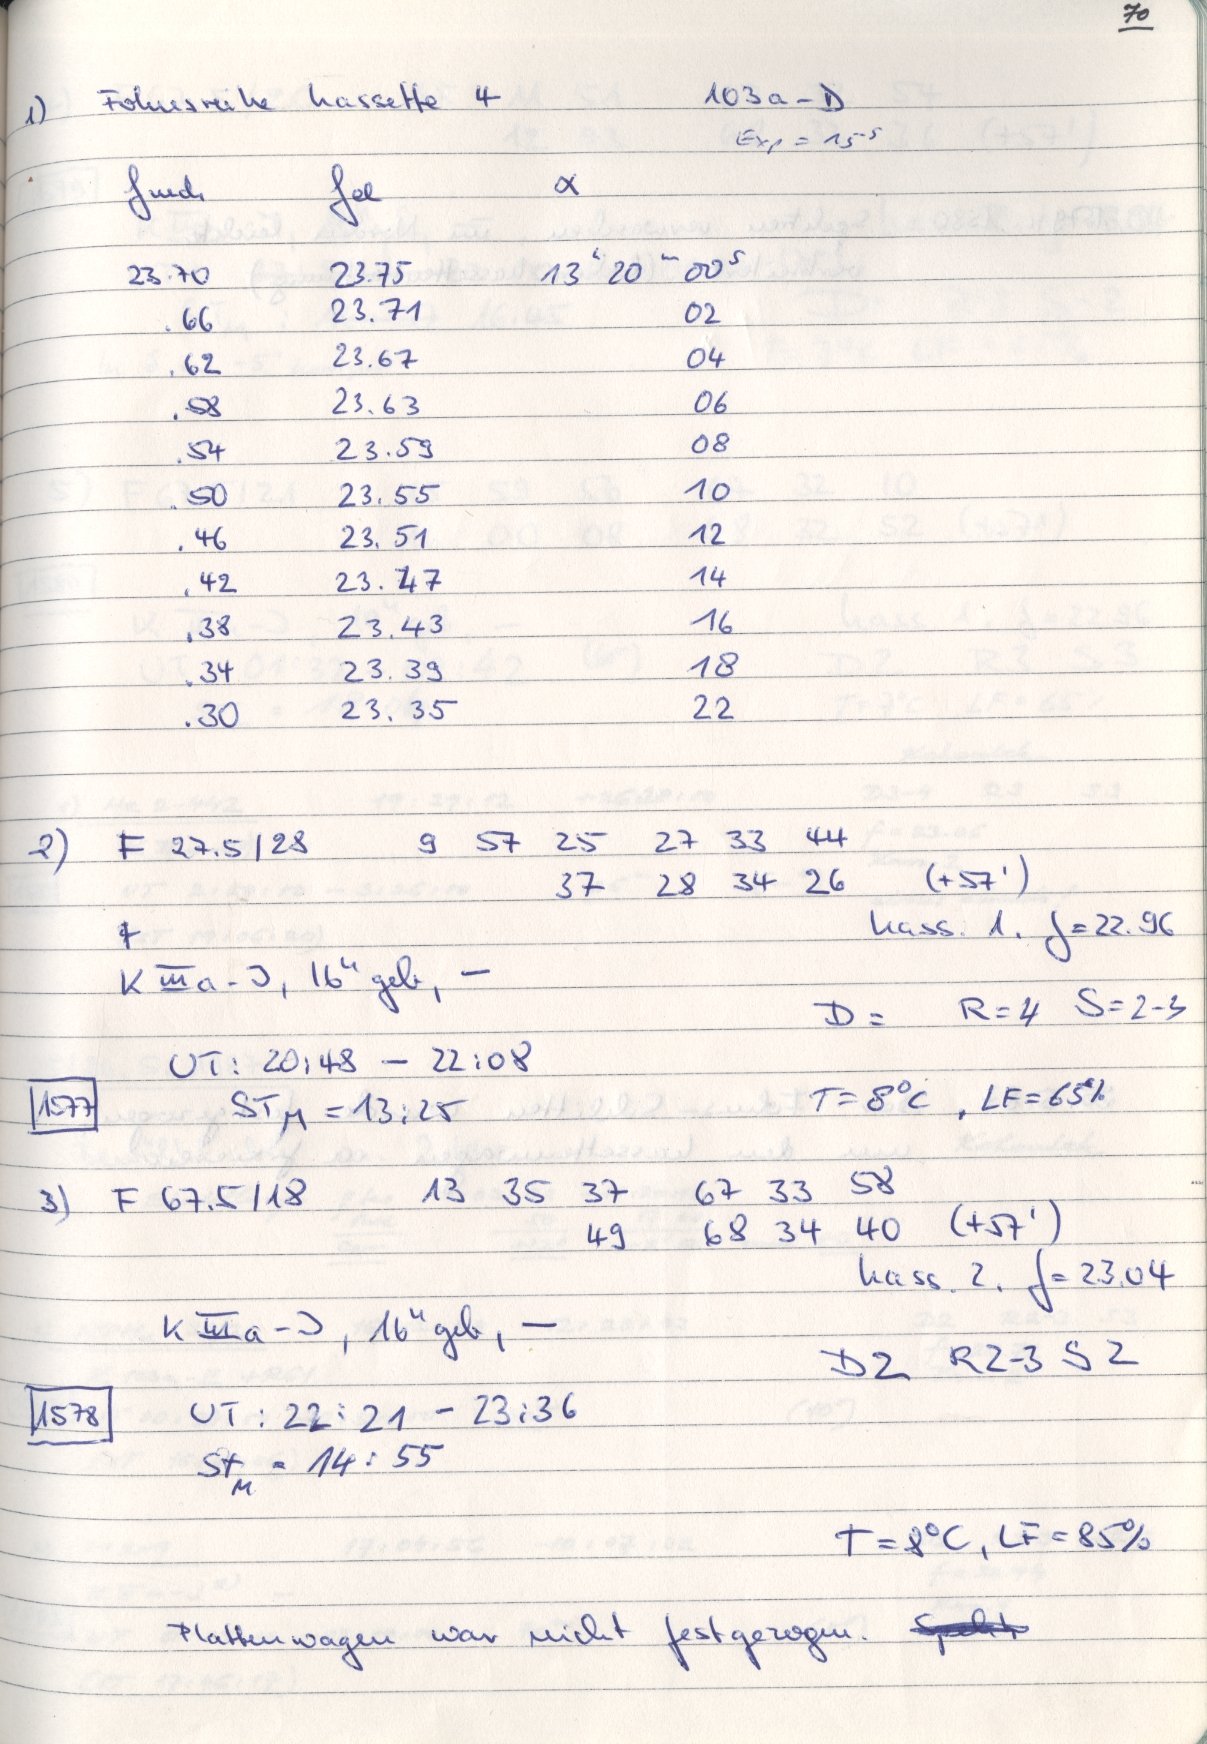 70
1) Fokusreihe Kassette 4 103a-D
Exp = 15s
fmech fel α
23.70 23.75 13h 20m 00s
.66 23.71 02
.62 23.67 04
.58 23.63 06
.54 23.59 08
.50 23.55 10
.46 23.51 12
.42 23.47 14
.38 23.43 16
.34 23.39 18
.30 23.35 22
2) F 27.5/28 9 57 25 27 33 44
37 28 34 26 (+57')
Kass. 1, f=22.96
K IIIa-J, 16h geb, —
D= R=4 S=2-3
UT: 20:48 — 22:08
1577 STM = 13:25 T=8°C, LF=65%
3) F 67.5/18 13 35 37 67 33 58
49 68 34 40 (+57')
Kass. 2, f=23.04
K IIIa-J, 16h geb, —
D2 R2-3 S2
1578 UT: 22:21 - 23:36
StM = 14:55
T=8°C, LF=85%
Plattenwagen war nicht festgezogen.